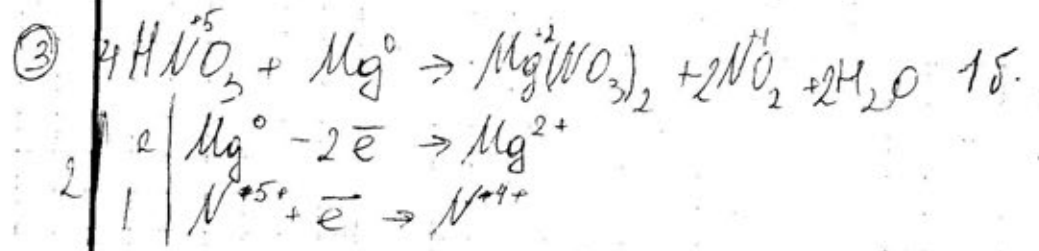 ③ 4HN⁺⁵O₃ + Mg⁰ → Mg⁺²(NO₃)₂ + 2N⁺⁴O₂ + 2H₂O 1б.
1 2 | Mg⁰ - 2e̅ → Mg²⁺
2 1 | N⁺⁵⁺ + e̅ → N⁺⁴⁺